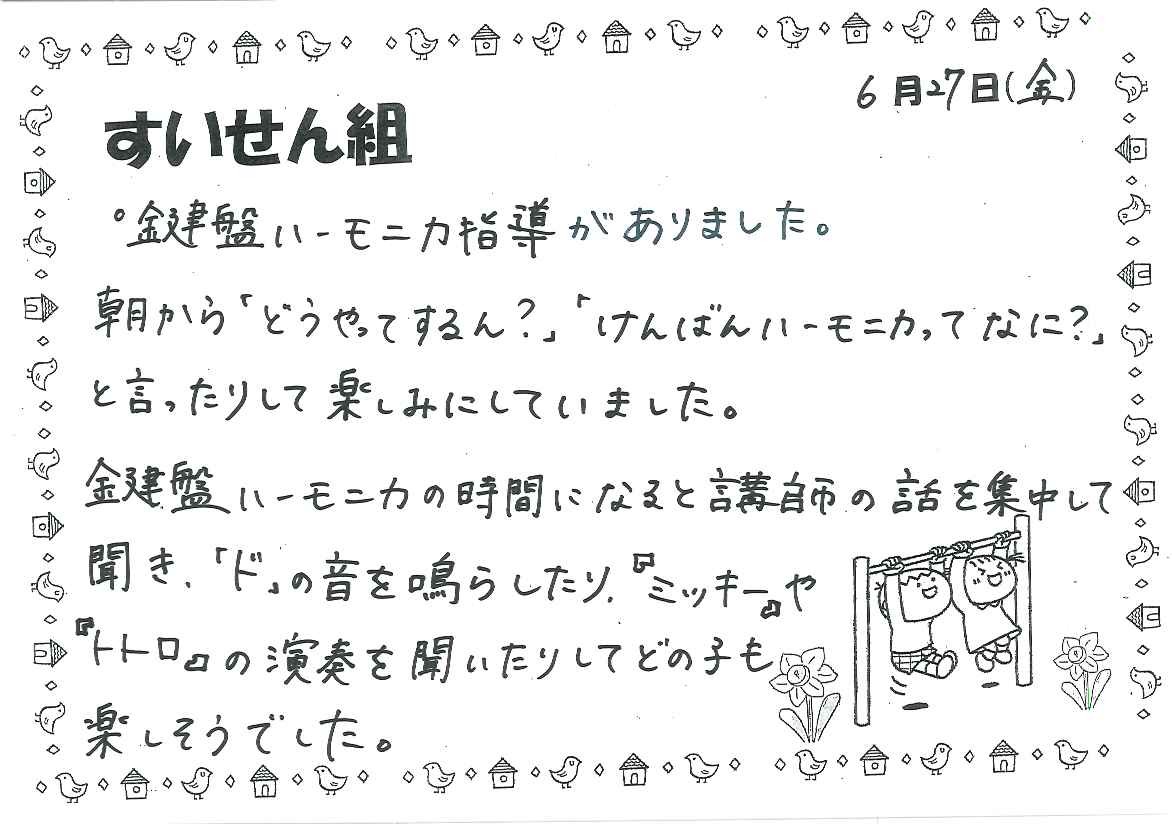 6月27日(金)
すいせん組
°鍵盤ハーモニカ指導がありました。
朝から「どうやってするん?」「けんばんハーモニカってなに?」
と言ったりして楽しみにしていました。
鍵盤ハーモニカの時間になると講師の話を集中して
聞き、「ド」の音を鳴らしたり、『ミッキー』や
『トトロ』の演奏を聞いたりしてどの子も
楽しそうでした。